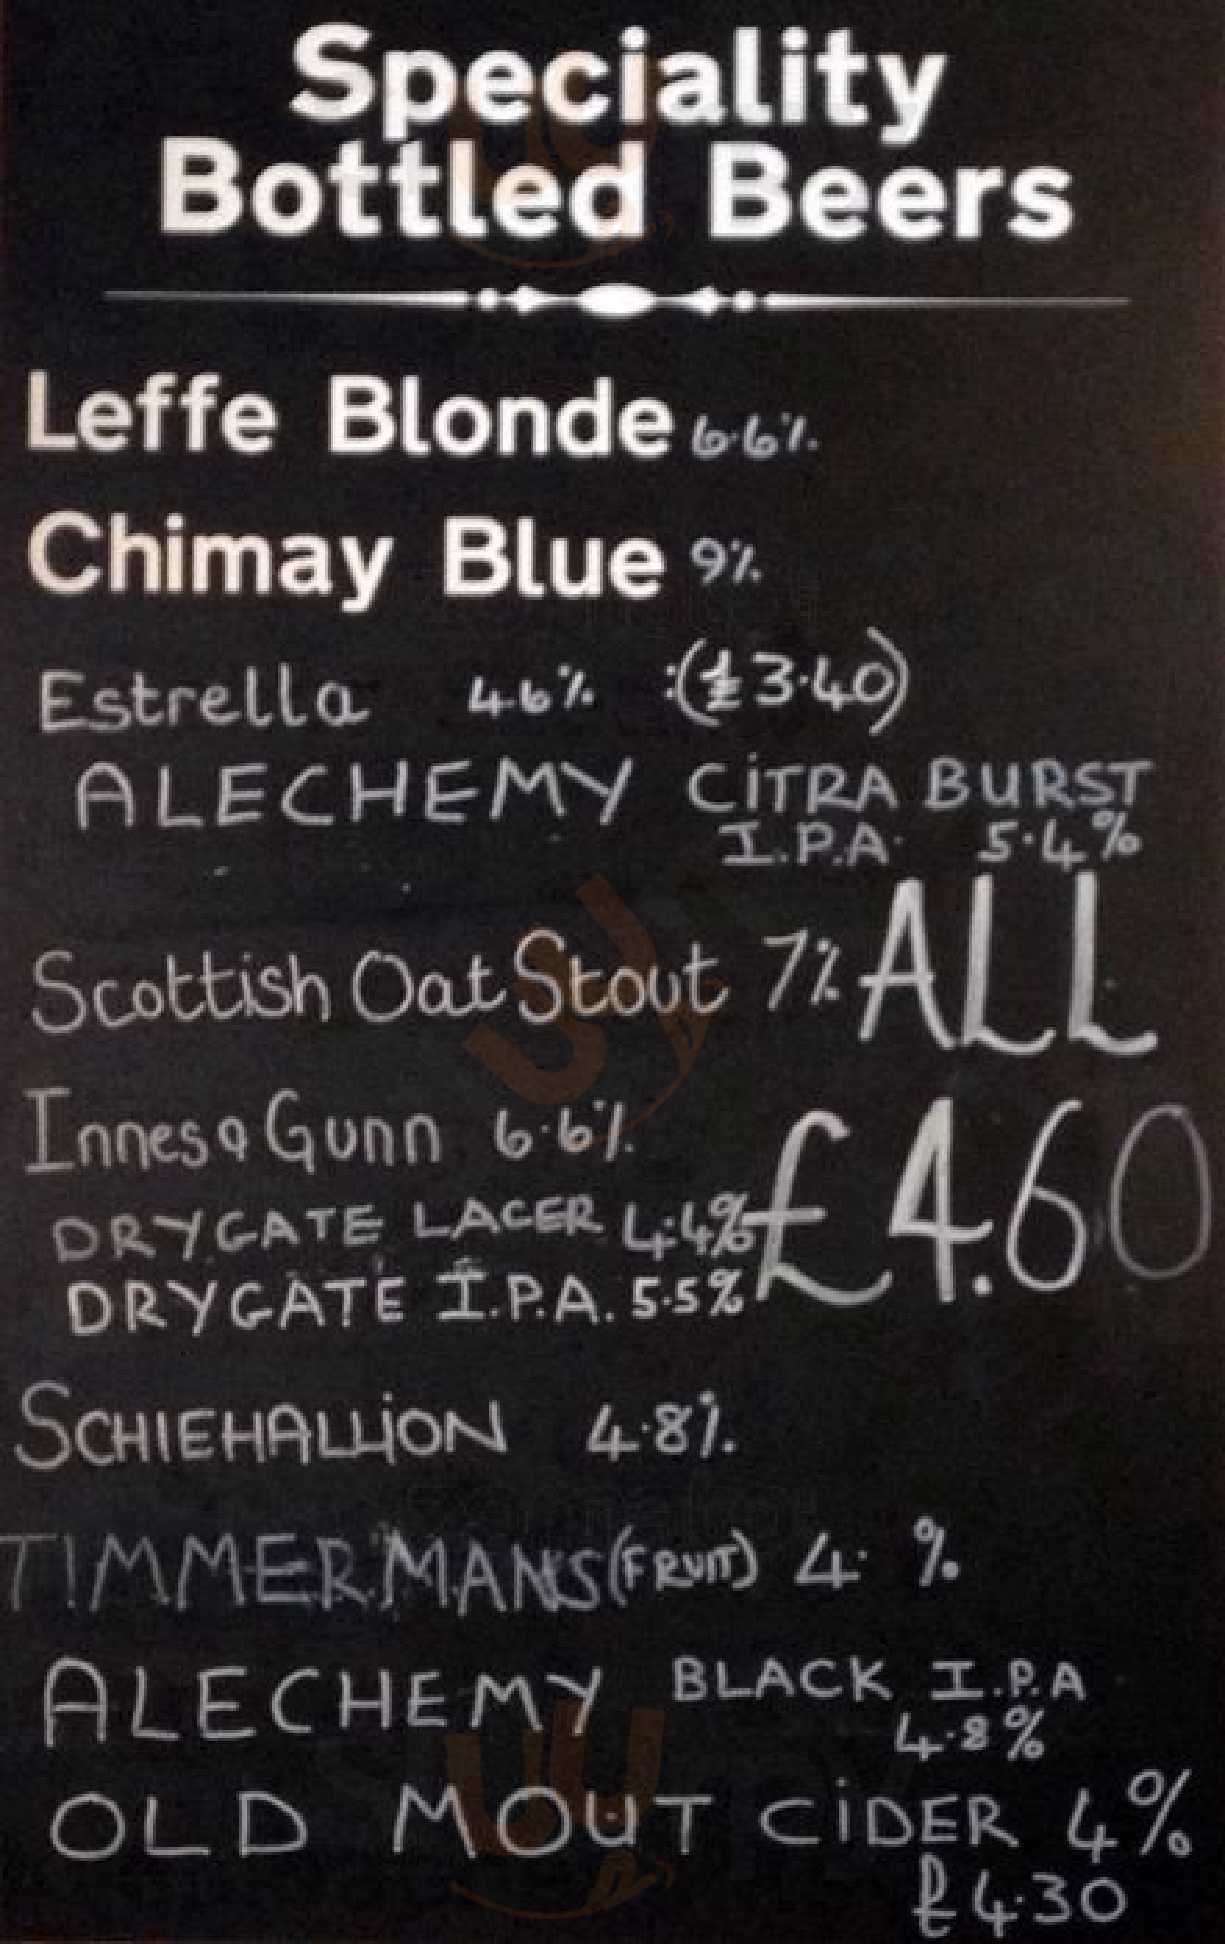 Speciality
Bottled Beers
Leffe Blonde 6.6%
Chimay Blue 9%
Estrella 4.6% :(£3.40)
ALECHEMY CiTRA BURST
I.P.A. 5.4%
Scottish Oat Stout 7% ALL
Innes & Gunn 6.6%
£4.60
DRYGATE LAGER 4.4%
DRYGATE I.P.A. 5.5%
SCHIEHALLiON 4.8%
TIMMERMANS (FRUIT) 4. %
ALECHEMY BLACK I.P.A
4.8%
OLD MOUT CiDER 4%
£4.30